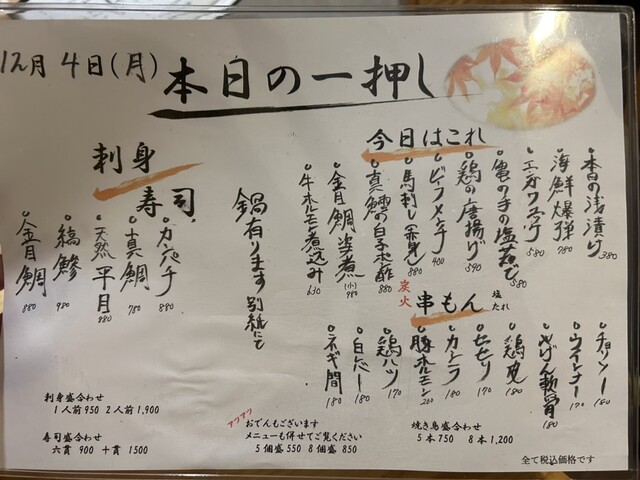 12月4日(月)
本日の一押し
今日はこれ
本日の浅漬け 380
海鮮爆弾 780
580
亀の手の塩茹で 580
鶏の唐揚げ 590
400
馬刺し(赤身) 880
真鱈の白子ポン酢 880
金目鯛当煮(小) 980
牛ホルモン煮込み 630
鍋有ります 別紙にて
刺身
寿司
カンパチ 880
真鯛 780
天然平目 980
縞鯵 980
金目鯛 880
炭火
串もん
塩
たれ
チョリソー 160
ウインナー 170
やげん軟骨 180
鶏皮 180
セセリ 170
カシラ 180
豚ホルモン 260
鶏ハツ 170
白レバー 180
ネギ間 180
刺身盛合わせ
1人前950 2人前1,900
寿司盛合わせ
六貫 900 十貫 1500
アツアツ
おでんもございます
メニューも併せてご覧ください
5個盛 550 8個盛 850
焼き鳥盛合わせ
5本750 8本1,200
全て税込価格です